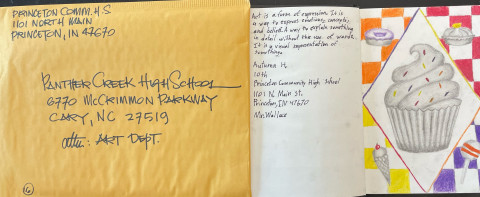 PRINCETON COMM. H.S
1101 NORTH MAIN
PRINCETON, IN 47670
PANTHER CREEK HIGH SCHOOL
6770 McCRIMMON PARKWAY
CARY, NC 27519
attn: ART DEPT.
6
Art is a form of expression. It is
a way to express emotions, concepts,
and beliefs. A way to explain something
in detail without the use of words.
It is a visual representation of
something.
Autumn H.
10th
Princeton Community High School
1101 N. Main St.
Princeton, IN 47670
Mrs. Wallace